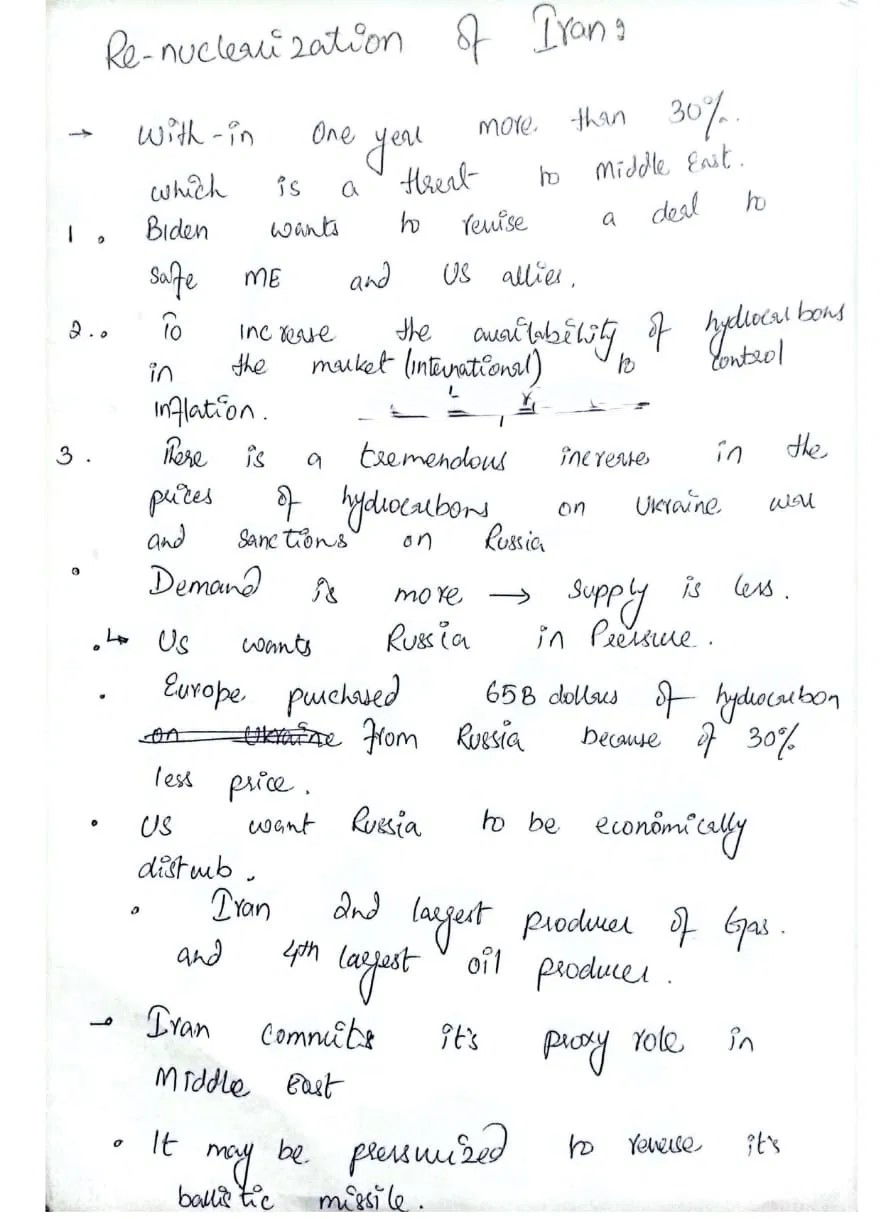 Re-nuclearization of Iran:
→ With-in one year more than 30%.
which is a threat to Middle East.
1. Biden wants to revise a deal to
safe ME and US allies.
2. To increase the availability of hydrocarbons
in the market (international) to control
inflation.
3. There is a tremendous increase in the
prices of hydrocarbons on Ukraine war
and sanctions on Russia
Demand is more → supply is less.
↳ US wants Russia in Pressure.
• Europe purchased 65B dollars of hydrocarbon
on Ukraine from Russia because of 30%
less price.
• US want Russia to be economically
disturb.
• Iran 2nd largest producer of Gas.
and 4th largest oil producer.
→ Iran commits it's proxy role in
Middle East
• It may be pressurized to reverse it's
ballistic missile.